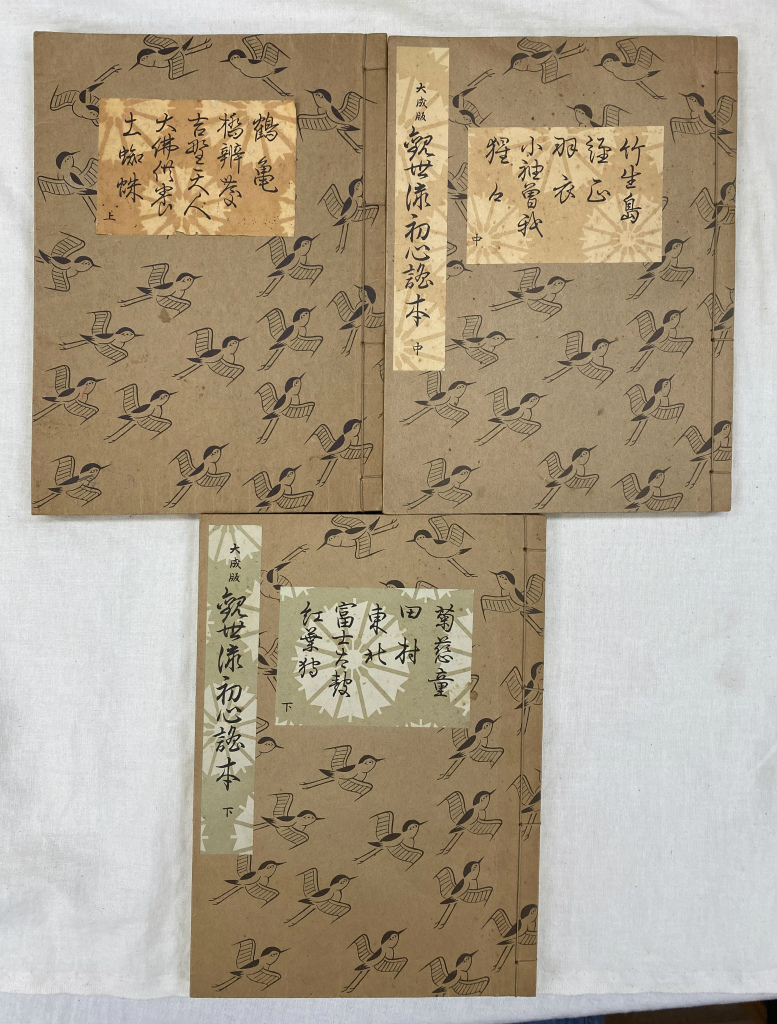 鶴亀
橋辨慶
吉野天人
大佛供養
土蜘蛛
上
大成版
觀世流初心謠本
中
竹生島
經正
羽衣
小袖曽我
猩々
中
大成版
觀世流初心謠本
下
菊慈童
田村
東北
富士太鼓
紅葉狩
下